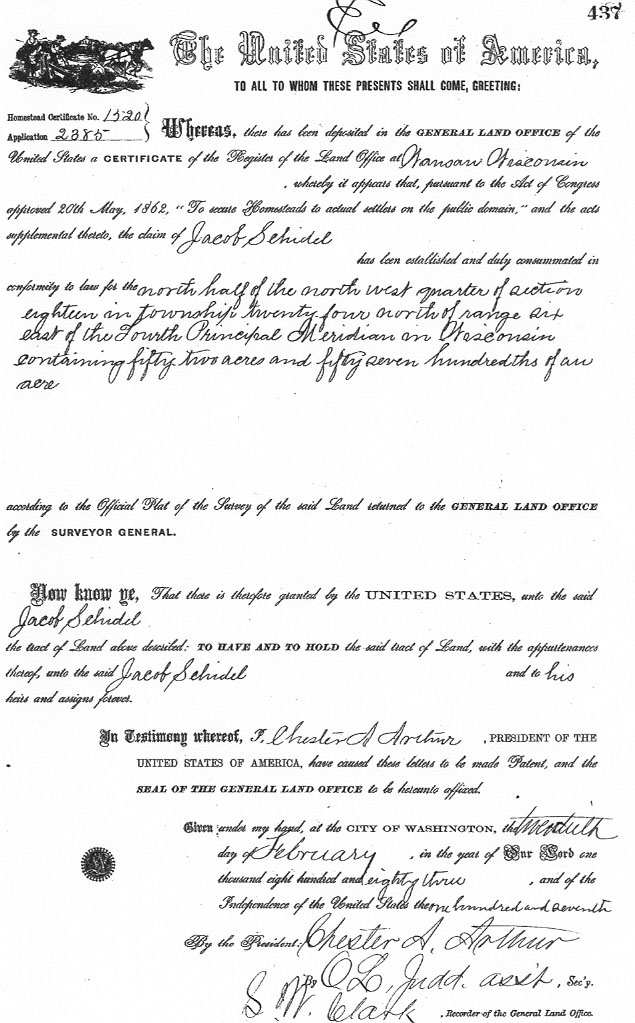 437
The United States of America,
TO ALL TO WHOM THESE PRESENTS SHALL COME, GREETING:
Homestead Certificate No. 1520
Application 2385
Whereas, there has been deposited in the GENERAL LAND OFFICE of the
United States a CERTIFICATE of the Register of the Land Office at Wausau Wisconsin
, whereby it appears that, pursuant to the Act of Congress
approved 20th May, 1862, "To secure Homesteads to actual settlers on the public domain," and the acts
supplemental thereto, the claim of Jacob Schidel
has been established and duly consummated in
conformity to law for the north half of the north west quarter of section
eighteen in township twenty four north of range six
east of the Fourth Principal Meridian in Wisconsin
containing fifty two acres and fifty seven hundredths of an
acre
according to the Official Plat of the Survey of the said Land returned to the GENERAL LAND OFFICE
by the SURVEYOR GENERAL.
Now know ye, That there is therefore granted by the UNITED STATES, unto the said
Jacob Schidel
the tract of Land above described: TO HAVE AND TO HOLD the said tract of Land, with the appurtenances
thereof, unto the said Jacob Schidel and to his
heirs and assigns forever.
In Testimony whereof, I, Chester A Arthur , PRESIDENT OF THE
UNITED STATES OF AMERICA, have caused these letters to be made Patent, and the
SEAL OF THE GENERAL LAND OFFICE to be hereunto affixed.
Given under my hand, at the CITY OF WASHINGTON, the twentieth
day of February , in the year of Our Lord one
thousand eight hundred and eighty three , and of the
Independence of the United States the one hundred and seventh
By the President: Chester A. Arthur
By O L, Judd. asst. Sec'y.
S. W. Clark , Recorder of the General Land Office.